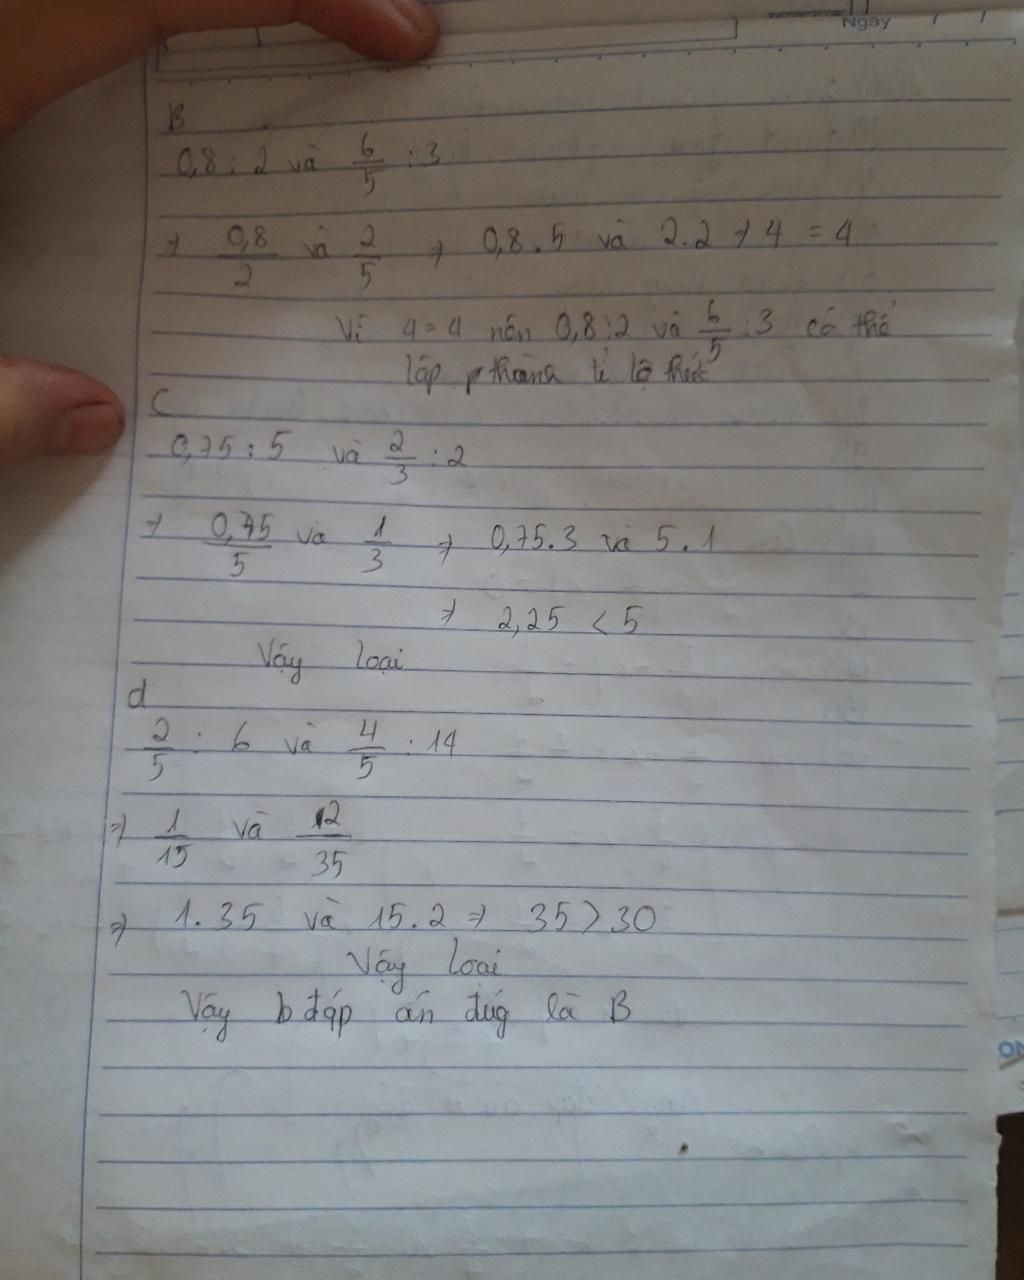 Ngày / /
B
0,8 : 2 và 6/5 : 3
=> 0,8/2 và 2/5 => 0,8 . 5 và 2.2 => 4 = 4
Vì 4 = 4 nên 0,8 : 2 và 6/5 : 3 có thể
lập thành tỉ lệ thức
C
0,75 : 5 và 2/3 : 2
=> 0,75/5 và 1/3 => 0,75.3 và 5.1
=> 2,25 < 5
Vậy loại
d
2/5 : 6 và 4/5 : 14
=> 1/15 và 2/35
=> 1.35 và 15.2 => 35 > 30
Vậy loại
Vậy b đáp án đúg là B